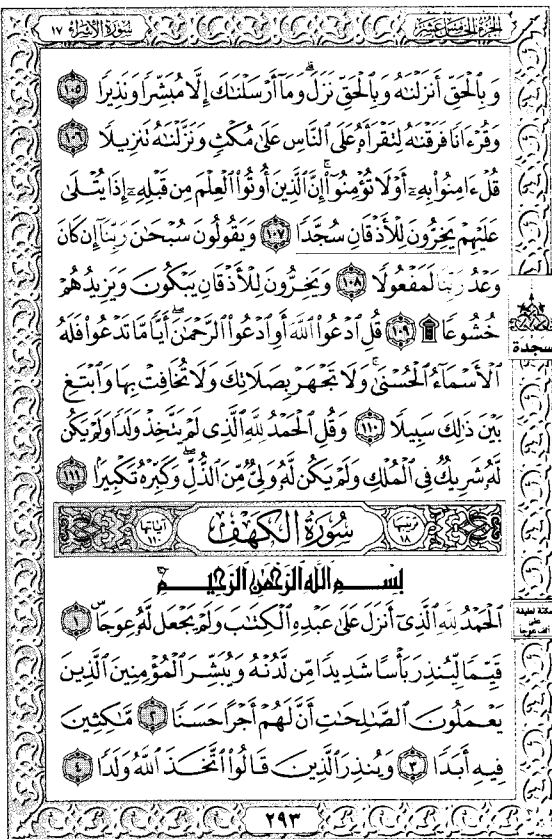 الجزء الخامس عشر سورة الإسراء ١٧
وَبِٱلْحَقِّ أَنزَلْنَٰهُ وَبِٱلْحَقِّ نَزَلَ ۗ وَمَآ أَرْسَلْنَٰكَ إِلَّا مُبَشِّرًا وَنَذِيرًا ١٠٥
وَقُرْءَانًا فَرَقْنَٰهُ لِتَقْرَأَهُۥ عَلَى ٱلنَّاسِ عَلَىٰ مُكْثٍ وَنَزَّلْنَٰهُ تَنزِيلًا ١٠٦
قُلْ ءَامِنُوا۟ بِهِۦٓ أَوْ لَا تُؤْمِنُوٓا۟ ۚ إِنَّ ٱلَّذِينَ أُوتُوا۟ ٱلْعِلْمَ مِن قَبْلِهِۦٓ إِذَا يُتْلَىٰ
عَلَيْهِمْ يَخِرُّونَ لِلْأَذْقَانِ سُجَّدًا ١٠٧ وَيَقُولُونَ سُبْحَٰنَ رَبِّنَآ إِن كَانَ
وَعْدُ رَبِّنَا لَمَفْعُولًا ١٠٨ وَيَخِرُّونَ لِلْأَذْقَانِ يَبْكُونَ وَيَزِيدُهُمْ
خُشُوعًا ۩ ١٠٩ قُلِ ٱدْعُوا۟ ٱللَّهَ أَوِ ٱدْعُوا۟ ٱلرَّحْمَٰنَ ۖ أَيًّا مَّا تَدْعُوا۟ فَلَهُ
سجدة
ٱلْأَسْمَآءُ ٱلْحُسْنَىٰ ۚ وَلَا تَجْهَرْ بِصَلَاتِكَ وَلَا تُخَافِتْ بِهَا وَٱبْتَغِ
بَيْنَ ذَٰلِكَ سَبِيلًا ١١٠ وَقُلِ ٱلْحَمْدُ لِلَّهِ ٱلَّذِى لَمْ يَتَّخِذْ وَلَدًا وَلَمْ يَكُن
لَّهُۥ شَرِيكٌ فِى ٱلْمُلْكِ وَلَمْ يَكُن لَّهُۥ وَلِىٌّ مِّنَ ٱلذُّلِّ ۖ وَكَبِّرْهُ تَكْبِيرًۢا ١١١
ترتيبها ١٨ سُورَةُ الكَهْف آياتها ١١٠
بِسْمِ ٱللَّهِ ٱلرَّحْمَٰنِ ٱلرَّحِيمِ
ٱلْحَمْدُ لِلَّهِ ٱلَّذِىٓ أَنزَلَ عَلَىٰ عَبْدِهِ ٱلْكِتَٰبَ وَلَمْ يَجْعَل لَّهُۥ عِوَجَاۜ ١
سكتة لطيفة
على
ألف عوجا
قَيِّمًا لِّيُنذِرَ بَأْسًا شَدِيدًا مِّن لَّدُنْهُ وَيُبَشِّرَ ٱلْمُؤْمِنِينَ ٱلَّذِينَ
يَعْمَلُونَ ٱلصَّٰلِحَٰتِ أَنَّ لَهُمْ أَجْرًا حَسَنًا ٢ مَّٰكِثِينَ
فِيهِ أَبَدًا ٣ وَيُنذِرَ ٱلَّذِينَ قَالُوا۟ ٱتَّخَذَ ٱللَّهُ وَلَدًا ٤
٢٩٣